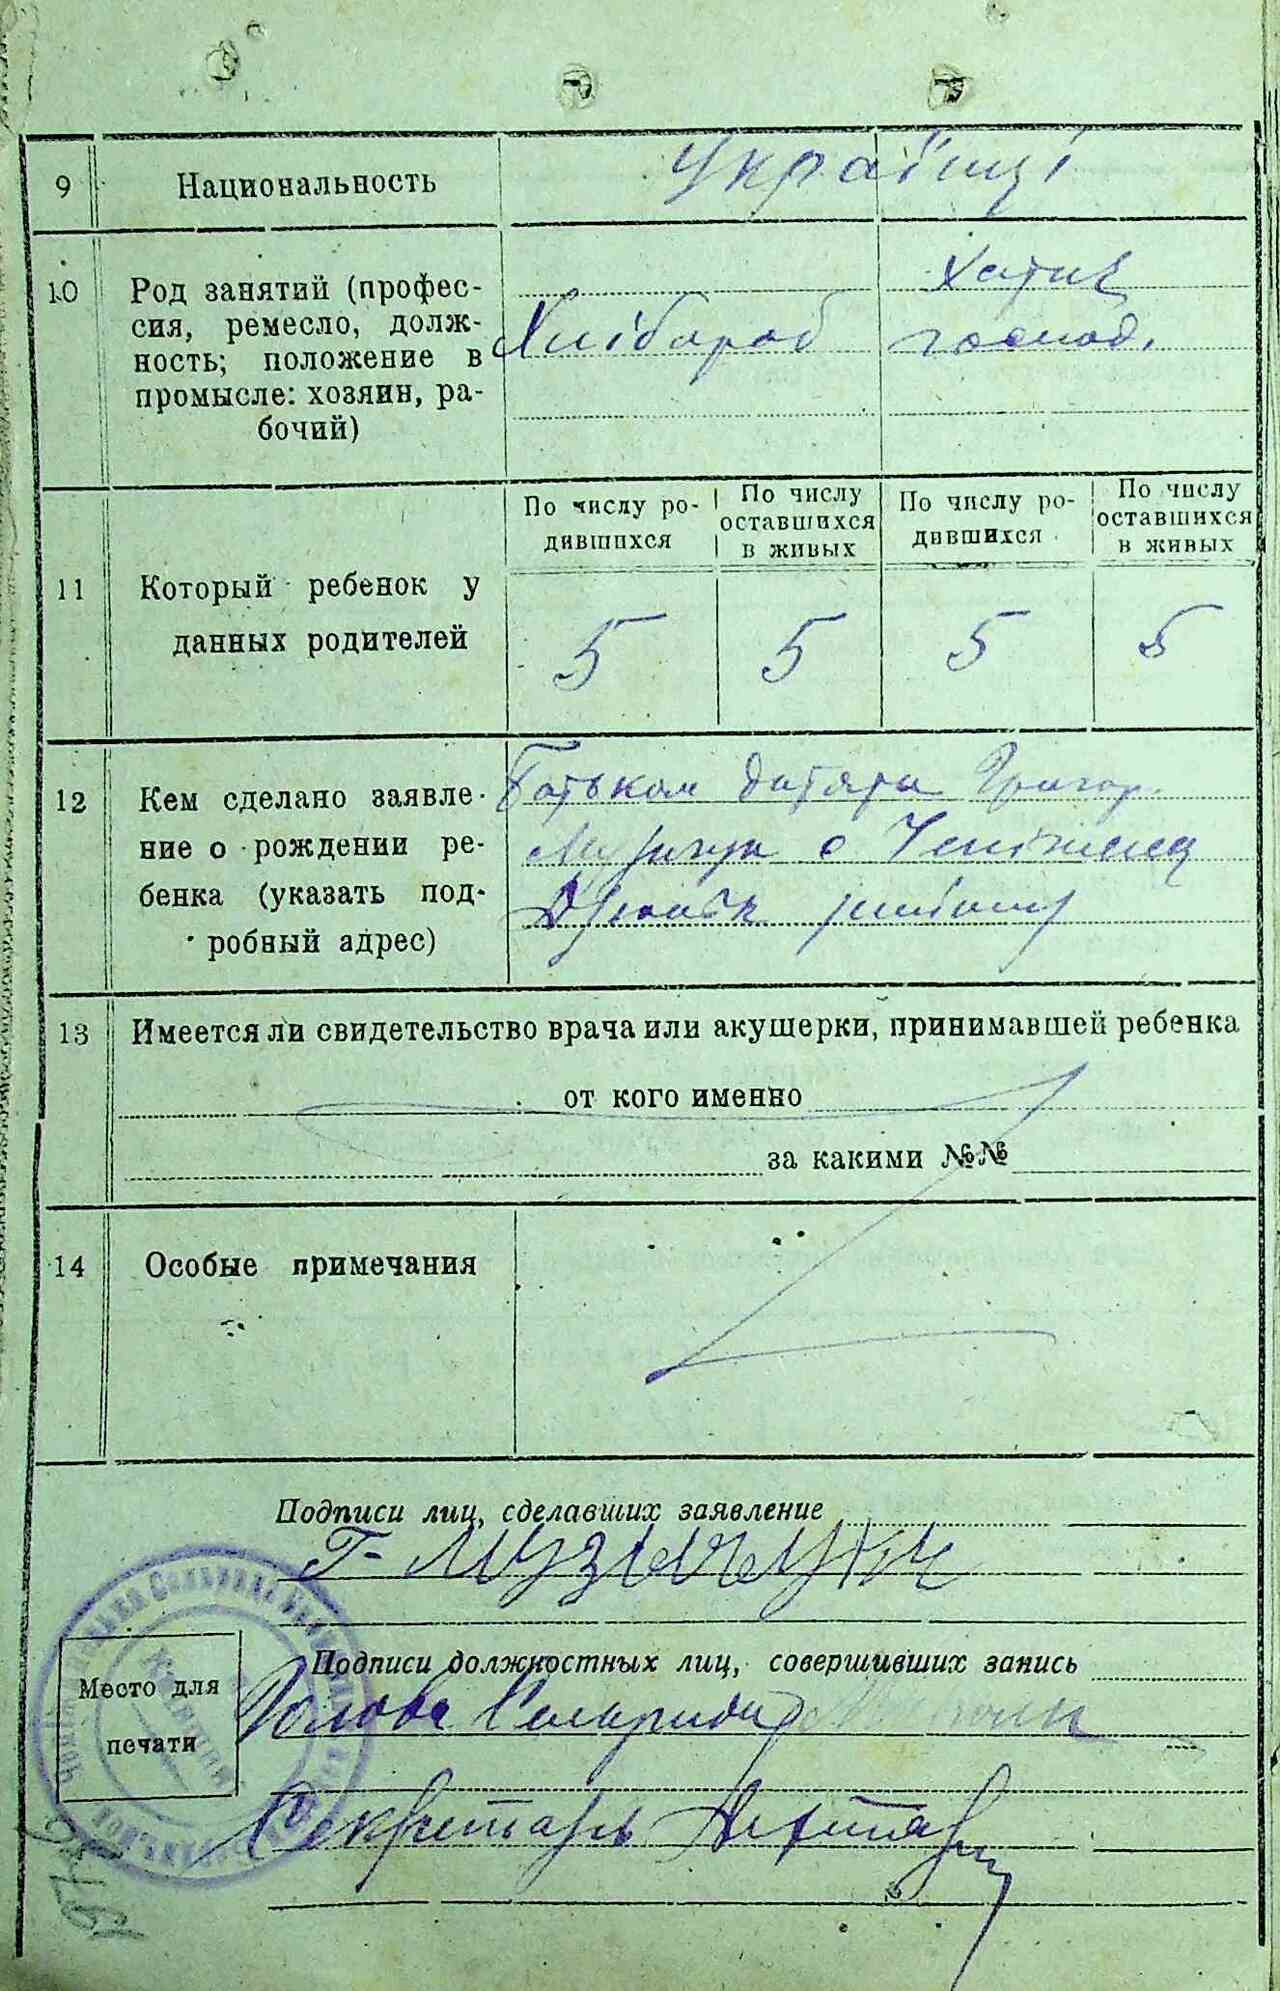 9 Национальность Українці
10 Род занятий (профес-
сия, ремесло, долж-
ность; положение в
промысле: хозяин, ра-
бочий)
Хлібороб
Хатнє
господ.
11 Который ребенок у
данных родителей
По числу ро-
дившихся
По числу
оставшихся
в живых
По числу ро-
дившихся
По числу
оставшихся
в живых
5 5 5 5
12 Кем сделано заявле-
ние о рождении ре-
бенка (указать под-
робный адрес)
Батьком дитяти Григор.
Музичук с
району
13 Имеется ли свидетельство врача или акушерки, принимавшей ребенка
от кого именно
за какими №№
14 Особые примечания
Подписи лиц, сделавших заявление
Г- Музичук
Подписи должностных лиц, совершивших запись
Место для
печати
Голова Сельради
Секретарь